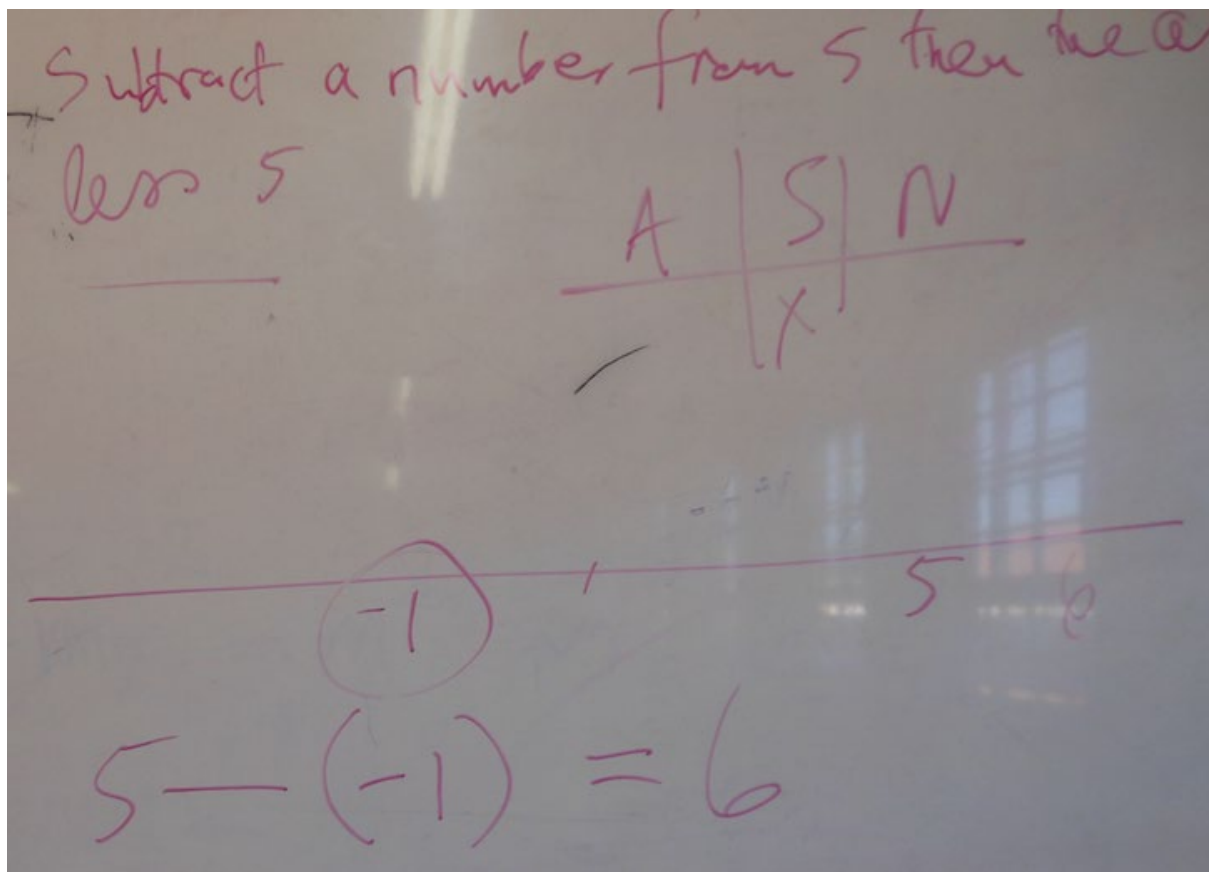 Subtract a number from 5 then the a
less 5
A S N
X
-1 5 6
5 - (-1) = 6